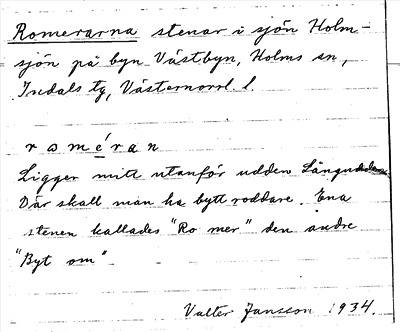 Romerarna stenar i sjön Holm-
sjön på byn Västbyn, Holms sn,
Indals tg, Västernorrl. l.
r o m é r a n
Ligger mitt utanför udden
Där skall man ha bytt roddare. Ena
stenen kallades "Ro mer" den andre
"Byt om"
Valter Jansson 1934.